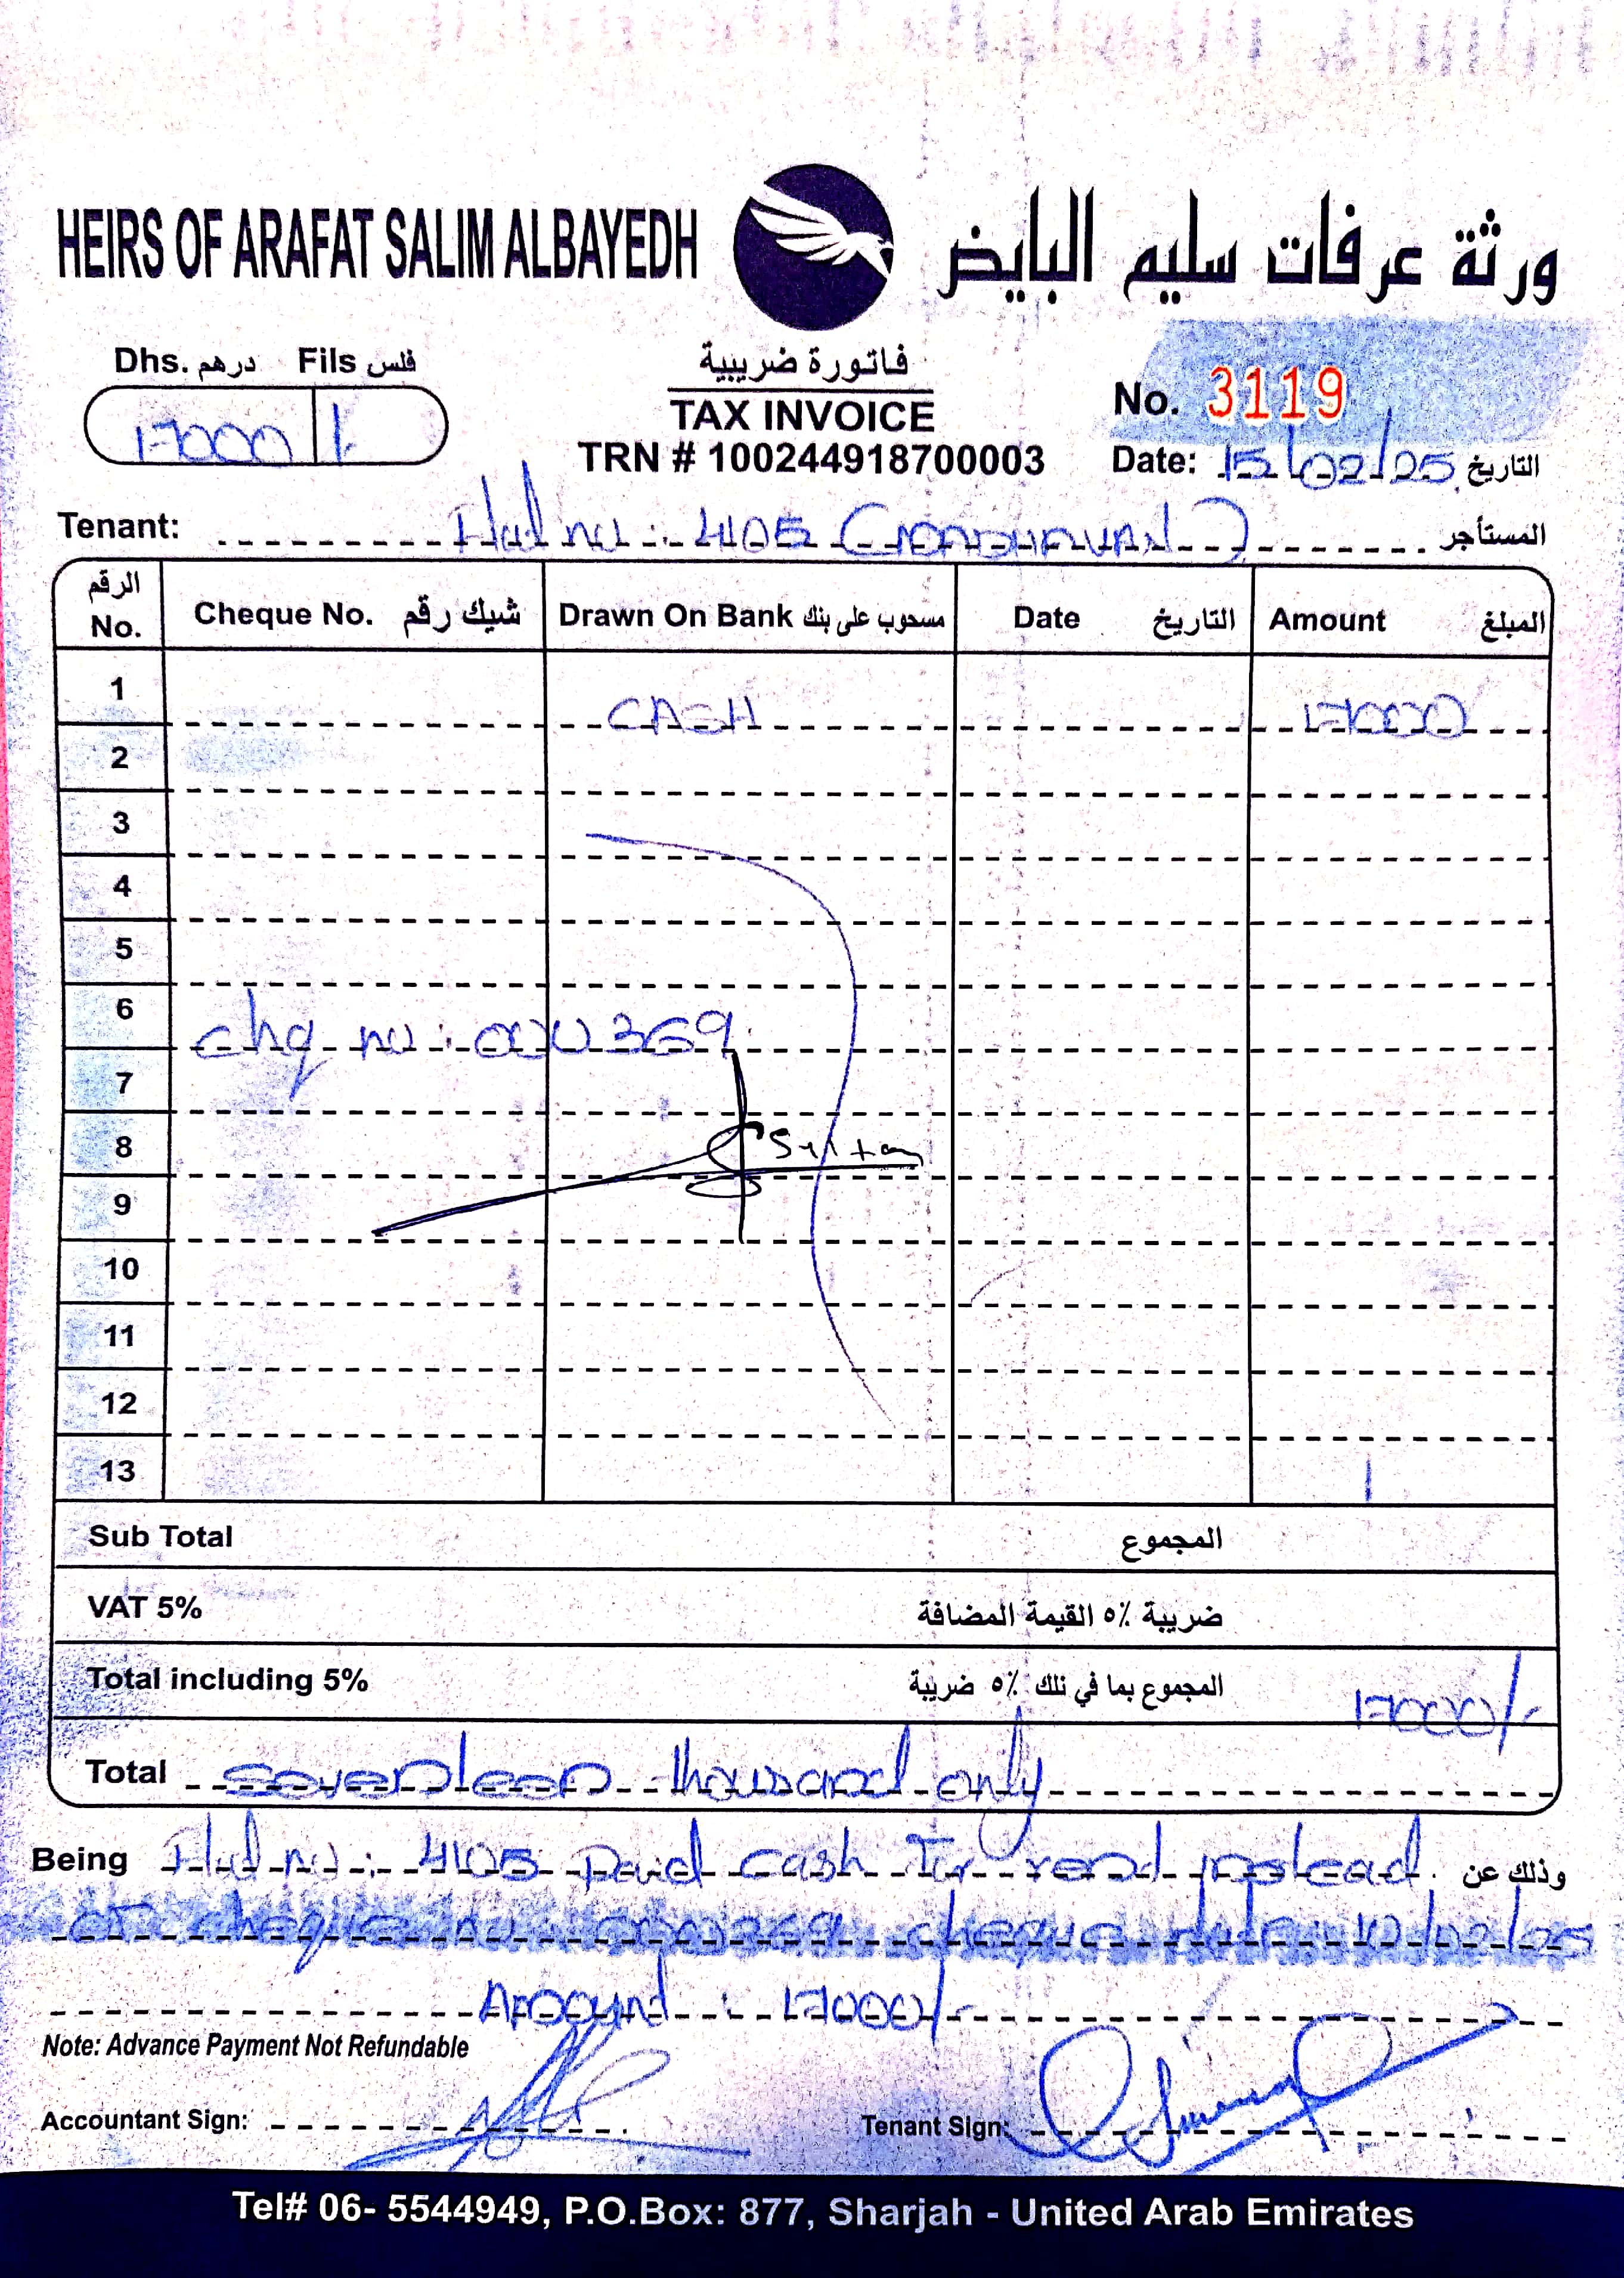 HEIRS OF ARAFAT SALIM ALBAYEDH
ورثة عرفات سليم البايض
Dhs. درهم Fils فلس
17000 /-
فاتورة ضريبية
TAX INVOICE
TRN # 100244918700003
No. 3119
Date: 15/02/25 التاريخ
Tenant: Flat no : 4105 المستأجر
الرقم No. Cheque No. شيك رقم Drawn On Bank مسحوب على بنك Date التاريخ Amount المبلغ
1 CASH 17000
2
3
4
5
6 chq no : 000369
7
8 Sultan
9
10
11
12
13
Sub Total المجموع
VAT 5% ضريبة ٥٪ القيمة المضافة
Total including 5% المجموع بما في تلك ٥٪ ضريبة 17000/-
Total Seventeen thousand only
Being Flat no : 4105 Paid cash For rent instead وذلك عن
of cheque no 000369 cheque date : 10/02/25
Amount : 17000/-
Note: Advance Payment Not Refundable
Accountant Sign:
Tenant Sign:
Tel# 06- 5544949, P.O.Box: 877, Sharjah - United Arab Emirates